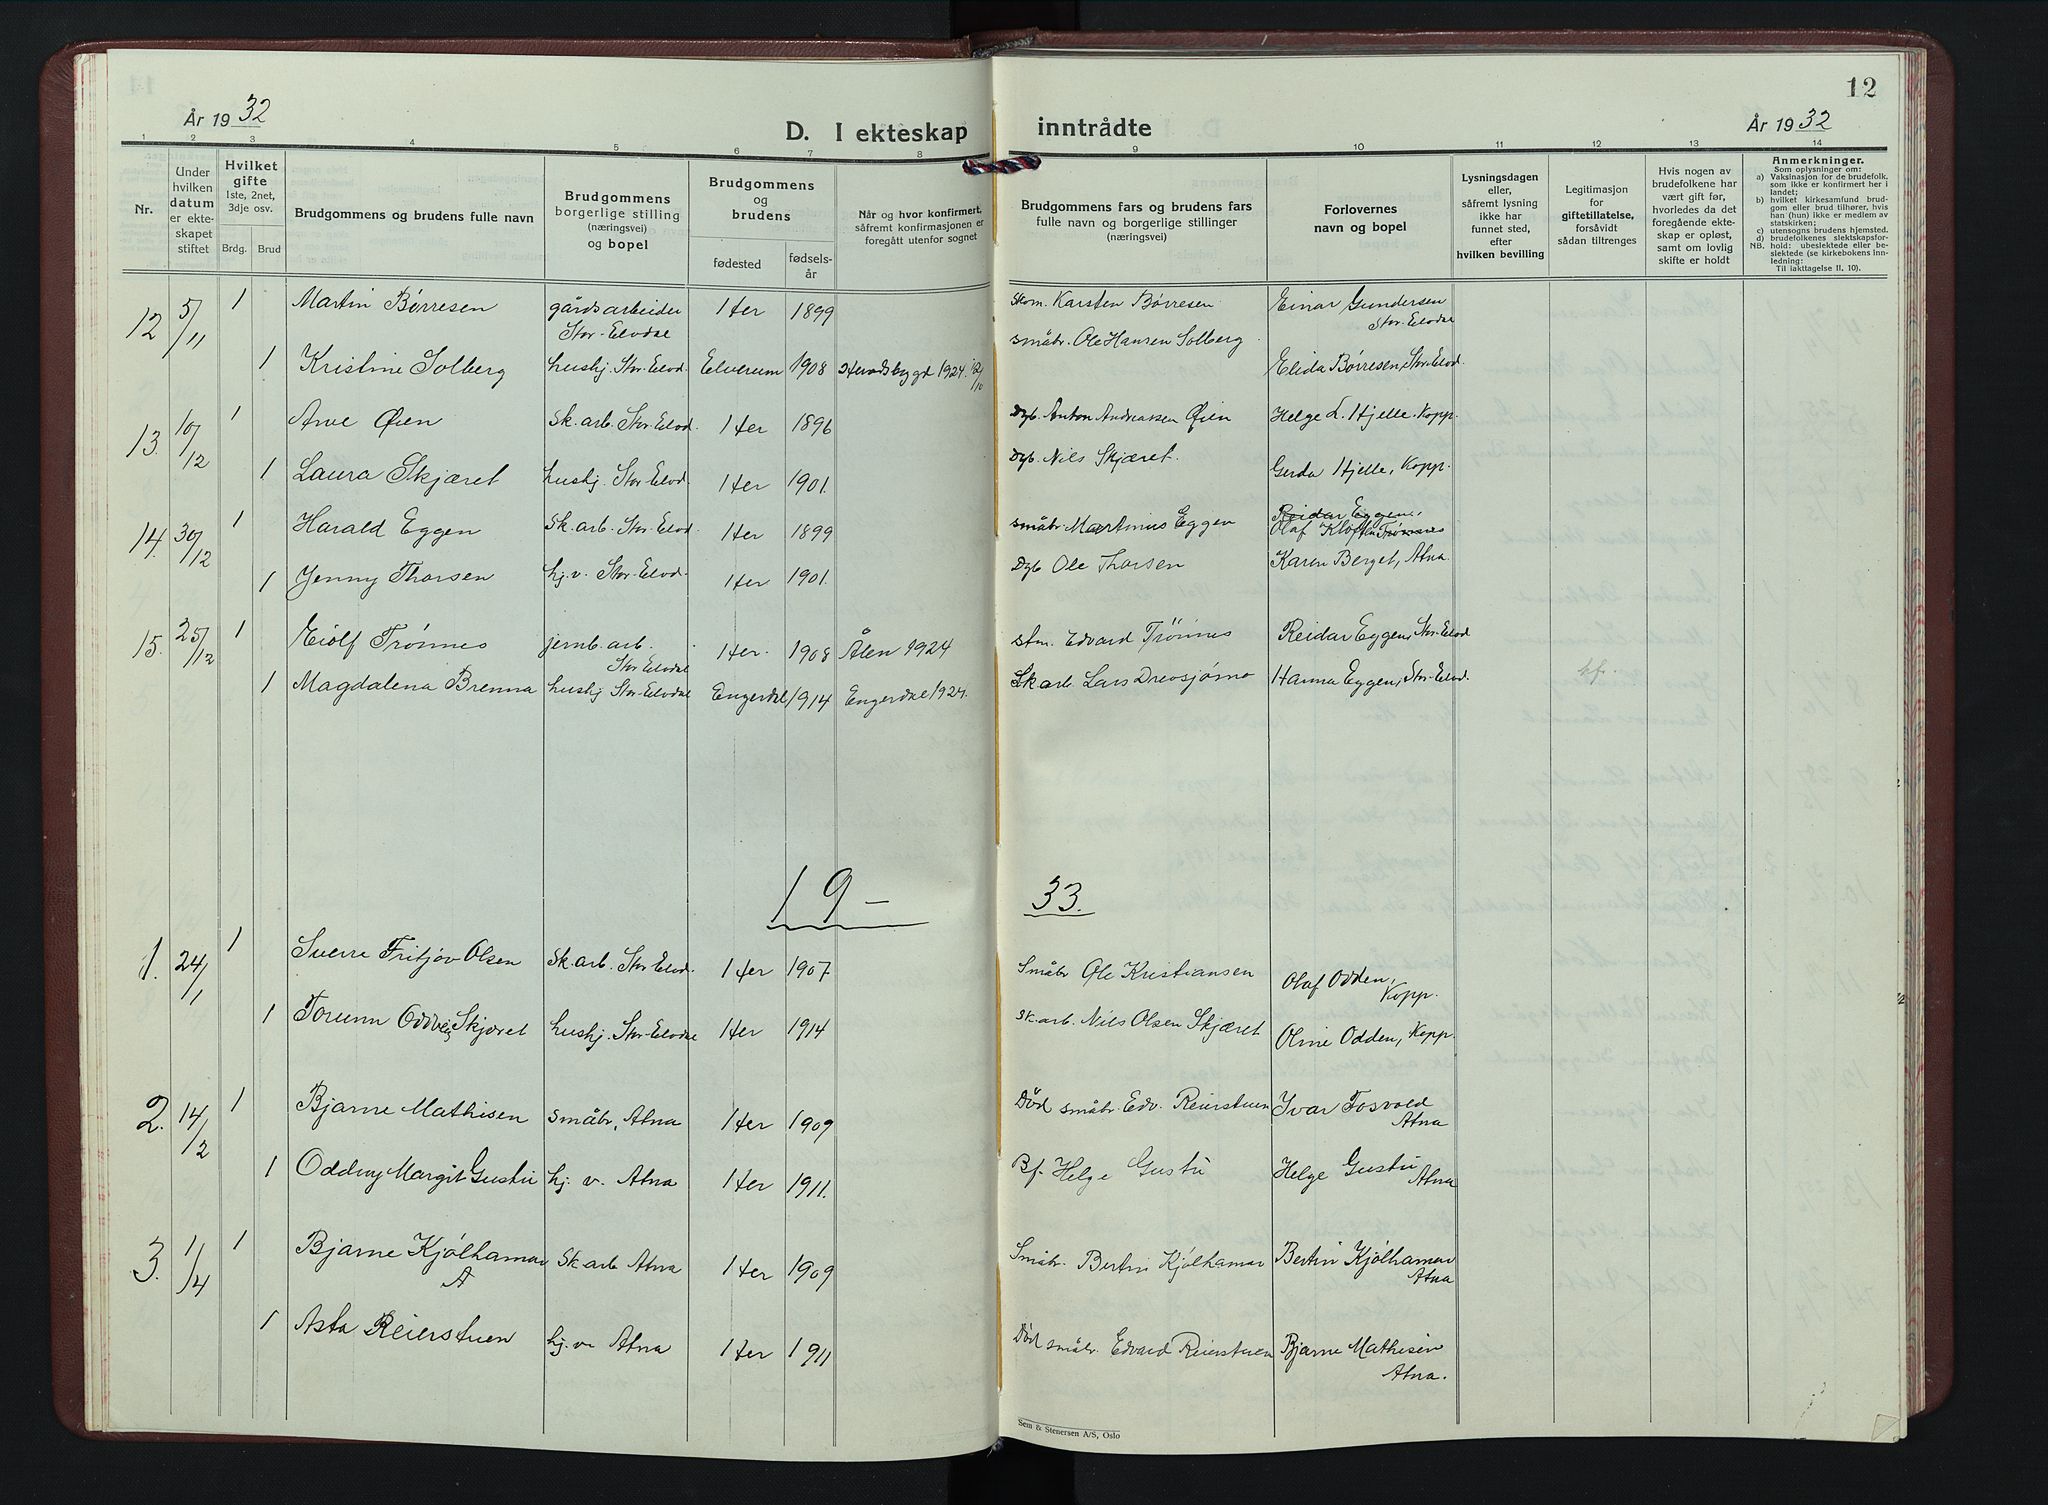 12
År 1932
År 1932
D. I ekteskap inntrådte
1 2 3 4 5 6 7 8 9 10 11 12 13 14
Nr.
Under hvilken datum er ekteskapet stiftet
Hvilket gifte
1ste, 2net, 3dje osv.
Brdg. Brud
Brudgommens og brudens fulle navn
Brudgommens borgerlige stilling (næringsvei) og bopel
Brudgommens og brudens
fødested fødselsår
Når og hvor konfirmert, såfremt konfirmasjonen er foregått utenfor sognet
Brudgommens fars og brudens fars fulle navn og borgerlige stillinger (næringsvei)
Forlovernes navn og bopel
Lysningsdagen eller, såfremt lysning ikke har funnet sted, efter hvilken bevilling
Legitimasjon for giftetillatelse, forsåvidt sådan tiltrenges
Hvis nogen av brudefolkene har vært gift før, hvorledes da det foregående ekteskap er opløst, samt om lovlig skifte er holdt
Anmerkninger.
Som oplysninger om:
a) Vaksinasjon for de brudefolk, som ikke er konfirmert her i landet;
b) hvilket kirkesamfund brudgom eller brud tilhører, hvis han (hun) ikke er medlem av statskirken;
c) utensogns brudens hjemsted.
d) brudefolkenes slektskapsforhold: ubeslektede eller beslektede (se kirkebokens innledning:
NB. Til iakttagelse II. 10).
12 5/11 1 Martin Børresen gårdsarbeider Stor-Elvdal Her 1899 Skom. Karsten Børresen Einar Gundersen Stor-Elvdal
1 Kristine Solberg hushj. Stor-Elvd. Elverum 1908 Heradsbygd 1924 småbr. Ole Hansen Solberg Elida Børresen, Stor-Elvd.
13. 10/12 1 Arve Øien Sk.arb. Stor-Elvd. Her 1896 Dgb. Anton Andreassen Øien Helge L. Hjelle. Kopp.
1 Laura Skjæret hushj. Stor-Elvd. Her 1901. Dgb. Nils Skjæret. Gerda Hjelle, Kopp.
14. 30/12 1 Harald Eggen Sk.arb. Stor-Elvd. Her 1899 småbr. Martinus Eggen Reidar Eggen, Olaf Kloften Trønnes
1 Jenny Thorsen hj.v. Stor-Elvd. Her 1901. Dgb. Ole Thorsen Karen Berget, Atna
15. 25/12 1 Eiolf Trønnes jernb.arb. Stor Elvdal Her. 1908 Ålen 1924 Edvard Trønnes Reidar Eggen, Stor-Elvd
1 Magdalena Brenna hushj Stor-Elvdal Engerdal 1914 Engerdal 1924. Sk arb. Lars Drevsjømo Hanna Eggen, Stor-Elvd.
19-33.
1. 24/1 1 Sverre Fritjov Olsen Sk.arb. Stor-Elvd. Her 1907. Småbr Ole Kristiansen Olaf Odden, Kopp.
1 Torunn Oddveig Skjæret hushj. Stor-Elvdal Her 1914 Sk.arb. Nils Olsen Skjæret Oline Odden, Kopp.
2. 14/2 1 Bjarne Mathisen småbr, Atna Her 1909 Død småbr. Edv. Reierstuen Ivar Fosvold Atna
1 Oddny Margit Gustu hj. v. Atna Her 1911. Bf. Helge Gustu Helge Gustu Atna
3. 1/4 1 Bjarne Kjølhamar A Sk arb Atna Her 1909 Småbr. Bertin Kjølhamar Bertin Kjølhamar Atna
1 Asta Reierstuen hj.v. Atna Her 1911 Død småbr. Edvard Reierstuen Bjarne Mathisen Atna.
Sem & Stenersen A/S, Oslo